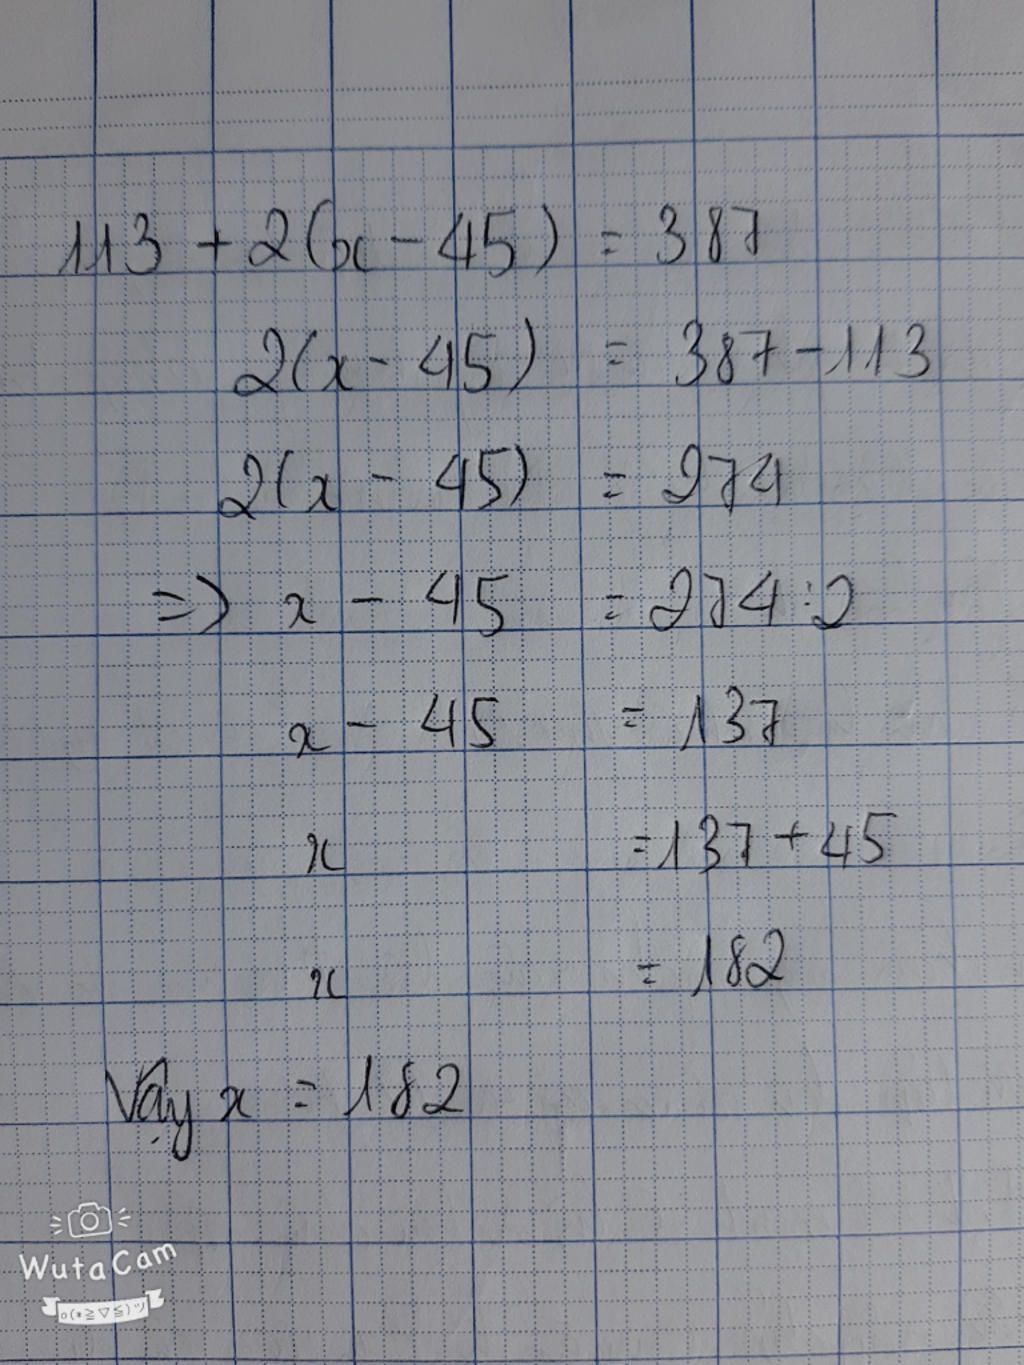 113 + 2(x - 45) = 387
2(x - 45) = 387 - 113
2(x - 45) = 274
=> x - 45 = 274 : 2
x - 45 = 137
x = 137 + 45
x = 182
Vậy x = 182
WutaCam
o(*≧▽≦)ツ